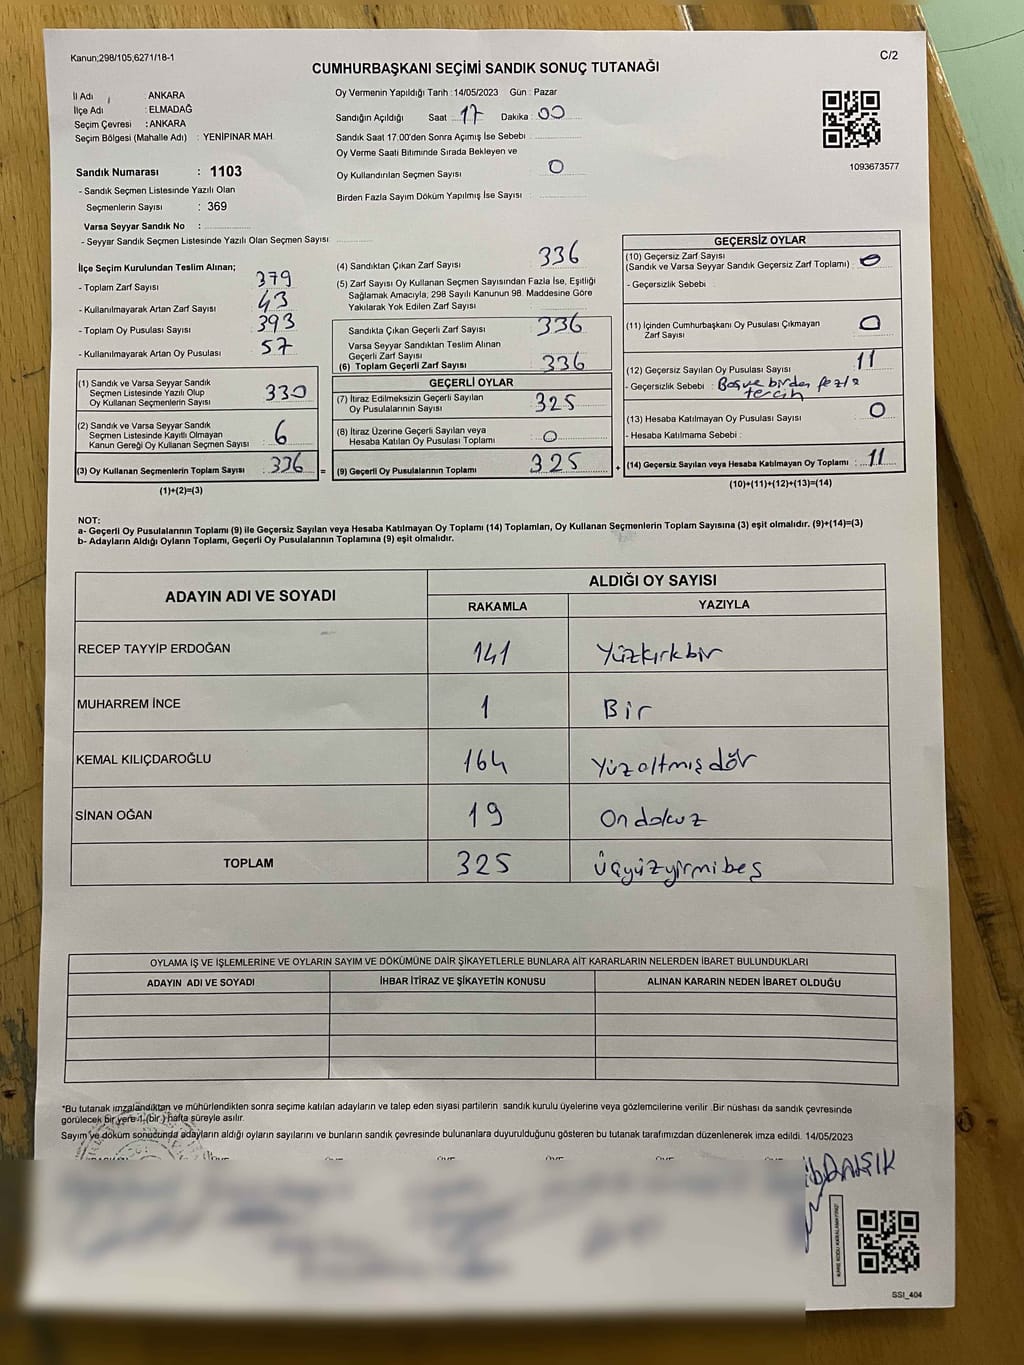 Kanun;298/105;6271/18-1
C/2
CUMHURBAŞKANI SEÇİMİ SANDIK SONUÇ TUTANAĞI
İl Adı : ANKARA
İlçe Adı : ELMADAĞ
Seçim Çevresi : ANKARA
Seçim Bölgesi (Mahalle Adı) : YENİPINAR MAH.
Oy Vermenin Yapıldığı Tarih :14/05/2023 Gün : Pazar
Sandığın Açıldığı Saat 17 Dakika : 00
Sandık Saat 17.00'den Sonra Açımış İse Sebebi :
Oy Verme Saati Bitiminde Sırada Bekleyen ve
Oy Kullandırılan Seçmen Sayısı : 0
Birden Fazla Sayım Döküm Yapılmış İse Sayısı :
1093673577
Sandık Numarası : 1103
- Sandık Seçmen Listesinde Yazılı Olan
Seçmenlerin Sayısı : 369
Varsa Seyyar Sandık No :
- Seyyar Sandık Seçmen Listesinde Yazılı Olan Seçmen Sayısı
İlçe Seçim Kurulundan Teslim Alınan;
- Toplam Zarf Sayısı : 379
- Kullanılmayarak Artan Zarf Sayısı : 43
- Toplam Oy Pusulası Sayısı : 393
- Kullanılmayarak Artan Oy Pusulası : 57
(1) Sandık ve Varsa Seyyar Sandık
Seçmen Listesinde Yazılı Olup
Oy Kullanan Seçmenlerin Sayısı : 330
(2) Sandık ve Varsa Seyyar Sandık
Seçmen Listesinde Kayıtlı Olmayan
Kanun Gereği Oy Kullanan Seçmen Sayısı : 6
(3) Oy Kullanan Seçmenlerin Toplam Sayısı : 336 =
(1)+(2)=(3)
(4) Sandıktan Çıkan Zarf Sayısı : 336
(5) Zarf Sayısı Oy Kullanan Seçmen Sayısından Fazla İse, Eşitliği
Sağlamak Amacıyla; 298 Sayılı Kanunun 98. Maddesine Göre
Yakılarak Yok Edilen Zarf Sayısı :
Sandıkta Çıkan Geçerli Zarf Sayısı : 336
Varsa Seyyar Sandıktan Teslim Alınan
Geçerli Zarf Sayısı :
(6) Toplam Geçerli Zarf Sayısı : 336
GEÇERLİ OYLAR
(7) İtiraz Edilmeksizin Geçerli Sayılan
Oy Pusulalarının Sayısı : 325
(8) İtiraz Üzerine Geçerli Sayılan veya
Hesaba Katılan Oy Pusulası Toplamı : 0
(9) Geçerli Oy Pusulalarının Toplamı : 325 +
GEÇERSİZ OYLAR
(10) Geçersiz Zarf Sayısı
(Sandık ve Varsa Seyyar Sandık Geçersiz Zarf Toplamı) : 0
- Geçersizlik Sebebi :
(11) İçinden Cumhurbaşkanı Oy Pusulası Çıkmayan
Zarf Sayısı : 0
(12) Geçersiz Sayılan Oy Pusulası Sayısı : 11
- Geçersizlik Sebebi : Boş ve birden fazla
tercih
(13) Hesaba Katılmayan Oy Pusulası Sayısı : 0
- Hesaba Katılmama Sebebi :
(14) Geçersiz Sayılan veya Hesaba Katılmayan Oy Toplamı : 11
(10)+(11)+(12)+(13)=(14)
NOT:
a- Geçerli Oy Pusulalarının Toplamı (9) ile Geçersiz Sayılan veya Hesaba Katılmayan Oy Toplamı (14) Toplamları, Oy Kullanan Seçmenlerin Toplam Sayısına (3) eşit olmalıdır. (9)+(14)=(3)
b- Adayların Aldığı Oyların Toplamı, Geçerli Oy Pusulalarının Toplamına (9) eşit olmalıdır.
ADAYIN ADI VE SOYADI
ALDIĞI OY SAYISI
RAKAMLA YAZIYLA
RECEP TAYYİP ERDOĞAN 141 Yüzkırkbir
MUHARREM İNCE 1 Bir
KEMAL KILIÇDAROĞLU 164 Yüzaltmışdör
SİNAN OĞAN 19 On dokuz
TOPLAM 325 Üçyüzyirmibeş
OYLAMA İŞ VE İŞLEMLERİNE VE OYLARIN SAYIM VE DÖKÜMÜNE DAİR ŞİKAYETLERLE BUNLARA AİT KARARLARIN NELERDEN İBARET BULUNDUKLARI
ADAYIN ADI VE SOYADI İHBAR İTİRAZ VE ŞİKAYETİN KONUSU ALINAN KARARIN NEDEN İBARET OLDUĞU
*Bu tutanak imzalandıktan ve mühürlendikten sonra seçime katılan adayların ve talep eden siyasi partilerin sandık kurulu üyelerine veya gözlemcilerine verilir .Bir nüshası da sandık çevresinde
görülecek bir yere 1 (bir ) hafta süreyle asılır.
Sayım ve döküm sonucunda adayların aldığı oyların sayılarını ve bunların sandık çevresinde bulunanlara duyurulduğunu gösteren bu tutanak tarafımızdan düzenlenerek imza edildi. 14/05/2023
SSI_404